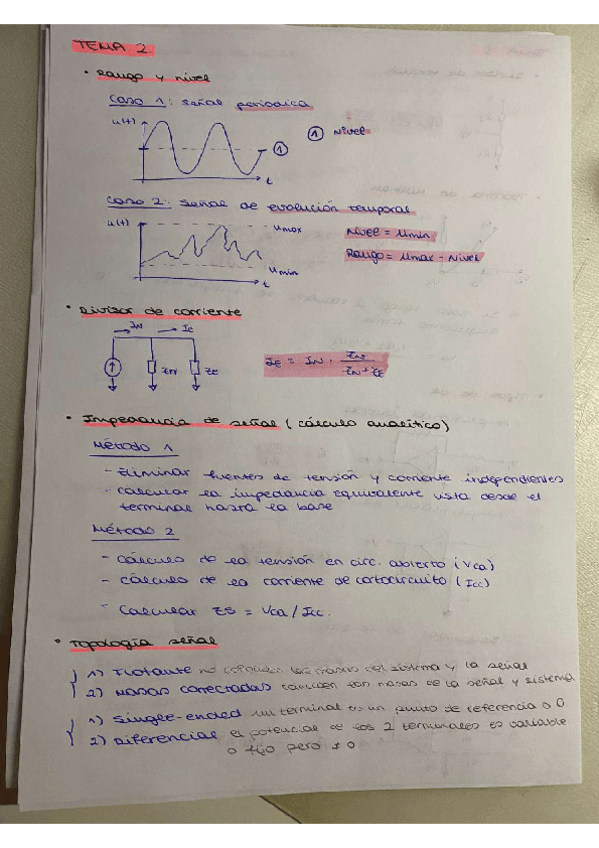 TEMA 2.
· Rango y nivel
Caso 1: señal periodica
u(t)
① Nivel
①
t
Caso 2: señal de evolución temporal
u(t)
umax
Nivel = umin
Rango = umax - Nivel
umin
t
· Divisor de corriente
IN
Ic
ZN
ZE
IE = IN · ZN / ZN + ZE
· Impedancia de señal (cálculo analítico)
Método 1
- Eliminar fuentes de tensión y corriente independientes
- calcular la impedancia equivalente vista desde el
terminal hasta la base
Método 2
- cálculo de la tensión en circ. abierto (Vca)
- cálculo de la corriente de cortocircuito (Icc)
- Calcular ZS = Vca / Icc.
· Topología señal
1) Flotante no coinciden las masas del sistema y la señal
2) Masas conectadas coinciden con masas de la señal y sistema
1) Single-ended un terminal es un punto de referencia o 0
2) Diferencial el potencial de los 2 terminales es variable
o fijo pero ≠ 0